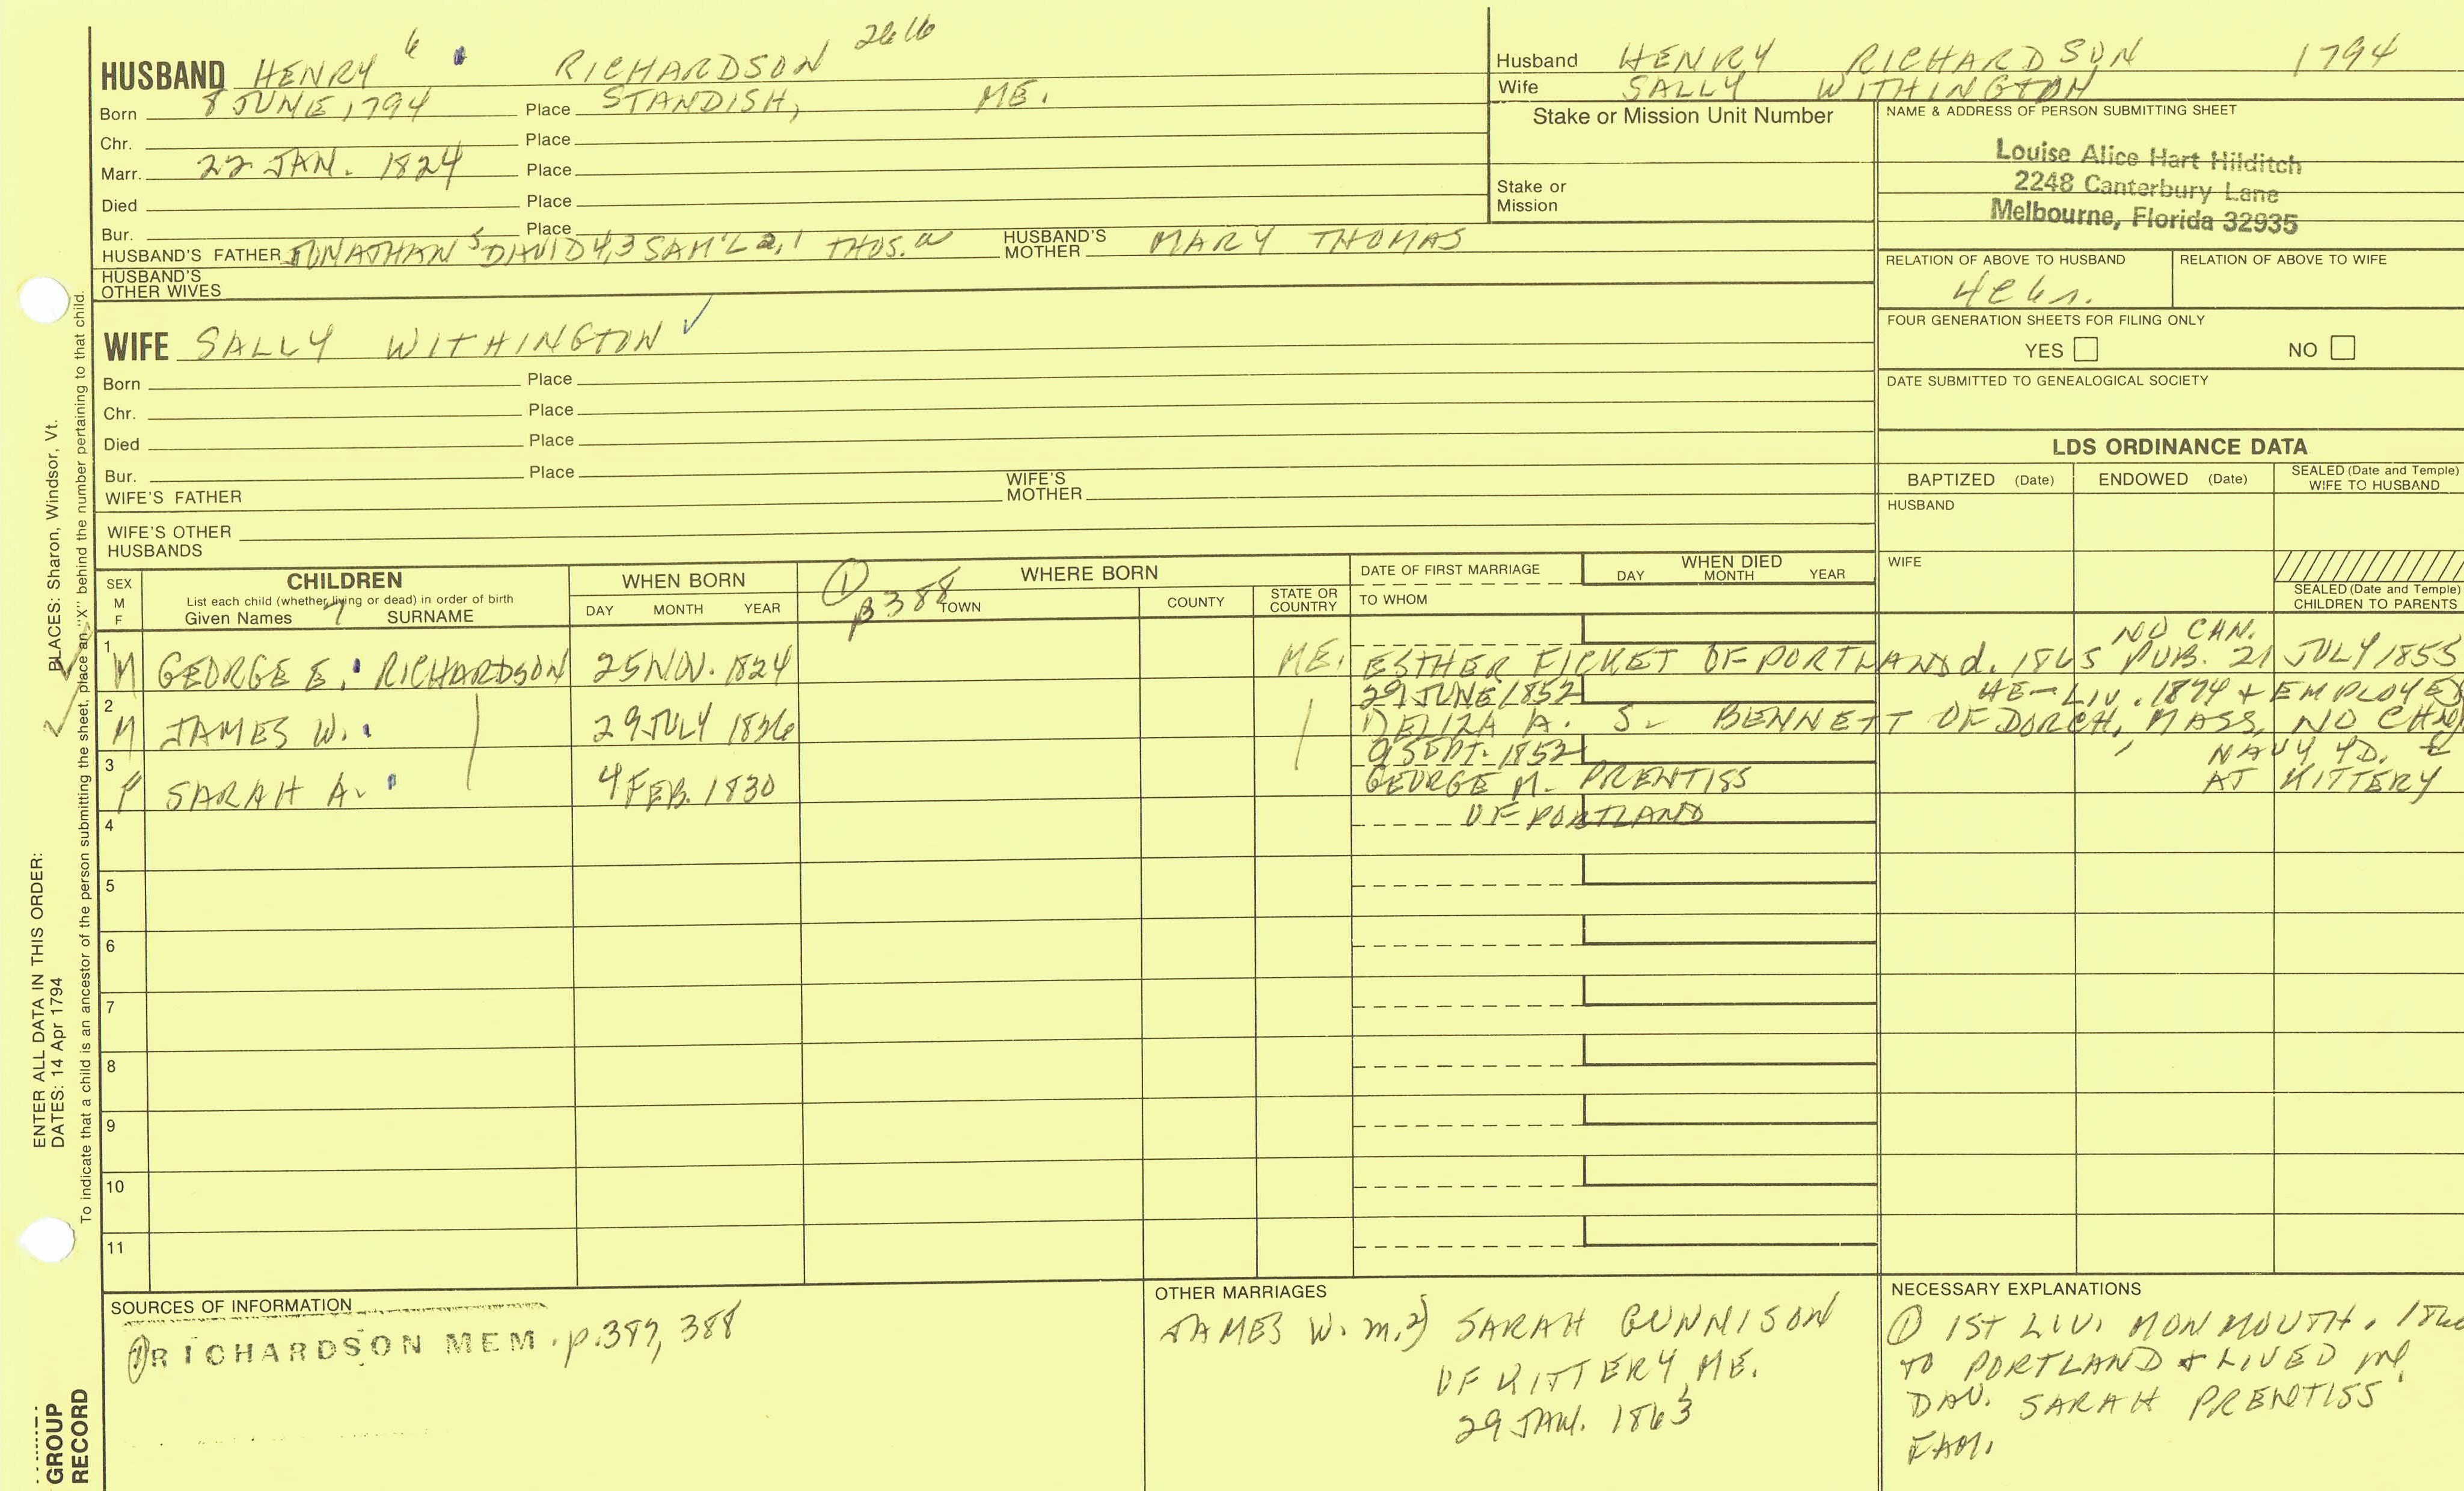 HUSBAND HENRY 6 RICHARDSON 2616
Born 8 JUNE 1794 Place STANDISH, ME.
Chr. Place
Marr. 22 JAN. 1824 Place
Died Place
Bur. Place
HUSBAND'S FATHER JONATHAN 5 DAVID 4,3 SAM'L 2,1 THOS. a HUSBAND'S MOTHER MARY THOMAS
HUSBAND'S OTHER WIVES
Husband HENRY RICHARDSON 1794
Wife SALLY WITHINGTON
Stake or Mission Unit Number
Stake or Mission
NAME & ADDRESS OF PERSON SUBMITTING SHEET
Louise Alice Hart Hilditch
2248 Canterbury Lane
Melbourne, Florida 32935
RELATION OF ABOVE TO HUSBAND RELATION OF ABOVE TO WIFE
FOUR GENERATION SHEETS FOR FILING ONLY
YES NO
DATE SUBMITTED TO GENEALOGICAL SOCIETY
WIFE SALLY WITHINGTON ✓
Born Place
Chr. Place
Died Place
Bur. Place
WIFE'S FATHER WIFE'S MOTHER
WIFE'S OTHER HUSBANDS
LDS ORDINANCE DATA
BAPTIZED (Date) ENDOWED (Date) SEALED (Date and Temple) WIFE TO HUSBAND
HUSBAND
WIFE
SEALED (Date and Temple) CHILDREN TO PARENTS
SEX M F
CHILDREN
List each child (whether living or dead) in order of birth
Given Names 7 SURNAME
WHEN BORN
DAY MONTH YEAR
① p388
WHERE BORN
TOWN COUNTY STATE OR COUNTRY
DATE OF FIRST MARRIAGE
TO WHOM
WHEN DIED
DAY MONTH YEAR
NO CHN.
1 M GEORGE E. RICHARDSON 25 NOV. 1824 ME. ESTHER FICKET OF PORTLAND d. 1865 PUB. 21 JULY 1855
29 JUNE 1852 HE LIV. 1874 & EMPLOYED
2 M JAMES W. 29 JULY 1826 1) ELIZA A. S. BENNETT OF DORCH, MASS, NO CHN
9 SEPT. 1852 NAVY YD.
3 F SARAH A. 4 FEB. 1830 GEORGE M. PRENTISS AT KITTERY
4 OF PORTLAND
5
6
7
8
9
10
11
SOURCES OF INFORMATION
① RICHARDSON MEM. p.387, 388
OTHER MARRIAGES
JAMES W. m. 2) SARAH GUNNISON
OF KITTERY, ME.
29 JAN. 1863
NECESSARY EXPLANATIONS
① 1ST LIV. MONMOUTH.
TO PORTLAND & LIVED
DAU. SARAH PRENTISS'
FAM.
ENTER ALL DATA IN THIS ORDER:
DATES: 14 Apr 1794
PLACES: Sharon, Windsor, Vt.
To indicate that a child is an ancestor of the person submitting the sheet, place an "X" behind the number pertaining to that child.
GROUP
RECORD